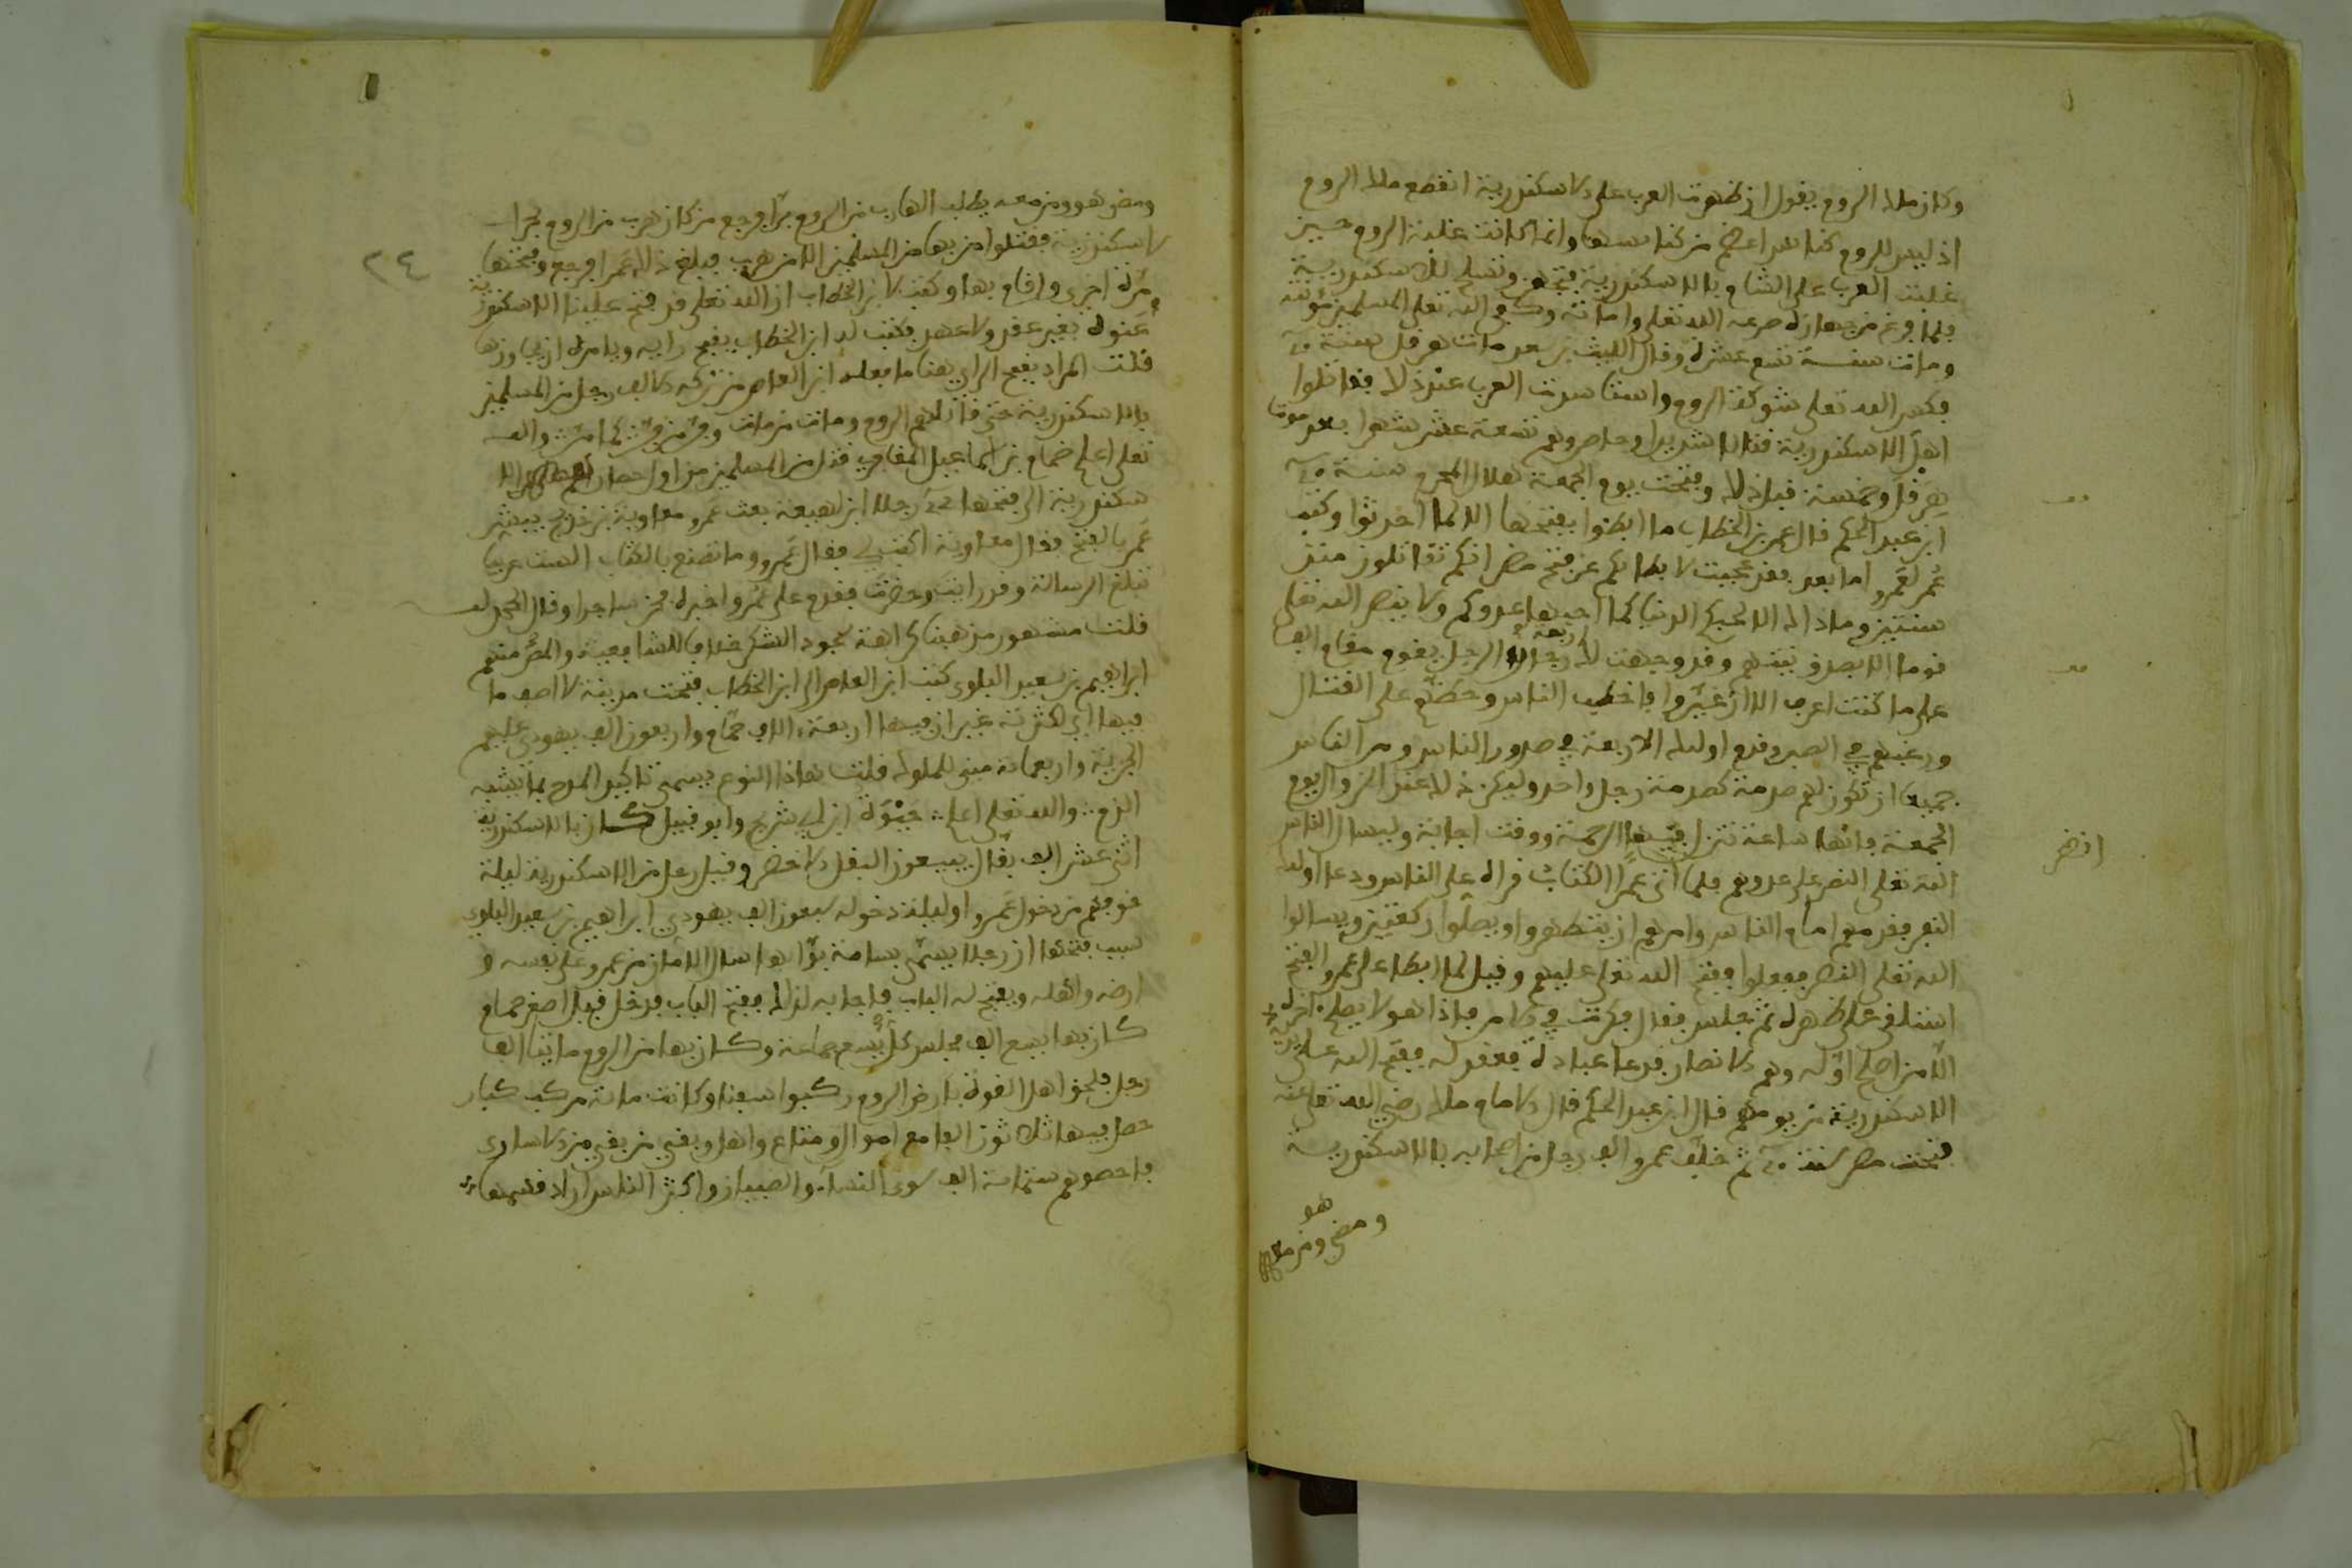 وكان ملك الروم يقول ان ظهرت العرب على الاسكندرية انقطع ملك الروم
اذ ليس للروم كنائس اعظم من كنائسها وانما كانت غلبة الروم حين
غلبت العرب على الشام بالاسكندرية فتجهز وتسلح للاسكندرية
فلما فرغ من جهازه صرعه الله تعلى واماته وكفى الله تعلى المسلمين مؤنته
ومات سنة تسع عشرة وقال الليث بن سعد مات هرقل سنة ٢٠
فكسر الله تعلى شوكة الروم واستاسدت العرب عند ذلك فقاتلوا
اهل الاسكندرية قتالا شديدا وحاصروهم تسعة عشر شهرا بعد موت
هرقل وخمسة قبل ذلك وفتحت يوم الجمعة هلال المحرم سنة ٢٠
ابن عبد الحكم قال عمر بن الخطاب ما ابطئوا بفتحها الا لما احدثوا وكتب
عمر لعمرو اما بعد فقد عجبت لابطائكم عن فتح مصر انكم تقاتلون منذ
سنتين وما ذاك الا لحبكم الدنيا كما احبها عدوكم ولا ينصر الله تعلى
قوما الا بصدق نيتهم وقد وجهت لك اربعة الرجل يقوم مقام الف
على ما كنت اعرف الا ان غيروا فاخطب الناس وحضهم على القتال
ورغبهم في الصبر وقدم اولئك الاربعة في صدور الناس ومر الناس
جميعا ان تكون لهم صدمة كصدمة رجل واحد وليكن ذلك عند الزوال يوم
الجمعة فانها ساعة تنزل فيها الرحمة ووقت اجابة وليسال الناس
الله تعلى النصر على عدوهم فلما اتى عمرا الكتاب قراه على الناس ودعا اولئك
النفر فقدمهم امام الناس وامرهم ان يتطهروا ويصلوا ركعتين ويسالوا
الله تعلى النصر ففعلوا ففتح الله تعلى عليهم وقيل لما ابطا على عمرو الفتح
استلقى على ظهره ثم جلس فقال فكرت في الامر فاذا هو لا يصلح اخره
الا من اصلح اوله وهم الانصار فدعا عبادة فعقد له ففتح الله على يديه
الاسكندرية من يومهم قال ابن عبد الحكم قال الامام مالك رضي الله تعلى عنه
فتحت مصر سنة ٢٠ ثم خلف عمرو الف رجل من اصحابه بالاسكندرية
هو
ومضى ومن معه
انظر
٢٤
ومضى هو ومن معه يطلب الهارب من الروم برا فرجع من كان هرب من الروم بحرا
لاسكندرية فقتلوا من بها من المسلمين الا من هرب فبلغ ذلك عمرا فرجع وفتحها
مرة اخرى واقام بها وكتب لابن الخطاب ان الله تعلى قد فتح علينا الاسكندرية
عنوة بغير عقد ولا عهد فكتب له ابن الخطاب يقبح رايه ويامره ان يجاوزها
قلت المراد بقبح الراي هنا ما فعله ابن العاص من تركه الالف رجل من المسلمين
بالاسكندرية حتى قاتلهم الروم ومات من مات وفر من فر كما مر والله
تعلى اعلم ضمام بن اسماعيل المعافري قتل من المسلمين من اول حصار الا
سكندرية الى فتحها رجلا ابن لهيعة بعث عمرو معاوية بن خديج يبشر
عمر بالفتح فقال معاوية اكتب لي فقال عمرو وما تصنع بالكتاب الست عربيا
تبلغ الرسالة وقد رايت وحضرت فقدم على عمر واخبره فخر ساجدا وقال الحمد لله
قلت مشهور مذهبنا كراهة سجود الشكر خلافا للشافعية
ابراهيم بن سعيد البلوي كتب ابن العاص الى ابن الخطاب فتحت مدينة لا اصف ما
فيها اي لكثرته غير ان فيها اربعة الاف حمام واربعون الف يهودي عليهم
الجزية واربعمائة مبنى للملوك قلت هذا النوع يسمى تاكيد المدح بما يشبه
الذم والله تعلى اعلم حيوة ابن شريح وابو قبيل كان بالاسكندرية
اثنى عشر الف بقال يبيعون البقل الاخضر وقيل رحل من الاسكندرية ليلة
خوفهم من دخول عمرو او ليلة دخوله سبعون الف يهودي ابراهيم بن سعيد البلوي
سبب فتحها ان رجلا يسمى بسامة بوابها سال الامان من عمرو على نفسه و
ارضه واهله ويفتح له الباب فاجابه لذلك ففتح الباب فدخل قيل اصغر حمام
كان بها يسع الف مجلس كل يسع جماعة وكان بها من الروم مائتا الف
رجل فلحق اهل القوة بارض الروم ركبوا سفنا وكانت مائة مركب كبار
حمل فيها ثلاثون الفا مع اموال ومتاع واهل وبقي من بقي من الاسارى
فاحصوهم ستمائة الف سوى النساء والصبيان واكثر الناس اراد قسمها